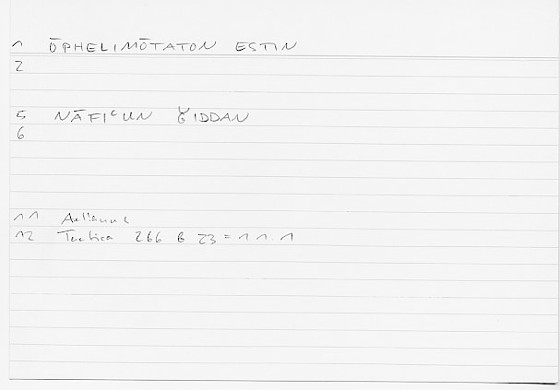 1 ŌPHELIMŌTATON ESTIN
2
5 NĀFIʿUN ǦIDDAN
6
11 Aelianus
12 Tactica 266 B 23 = 1 1 1